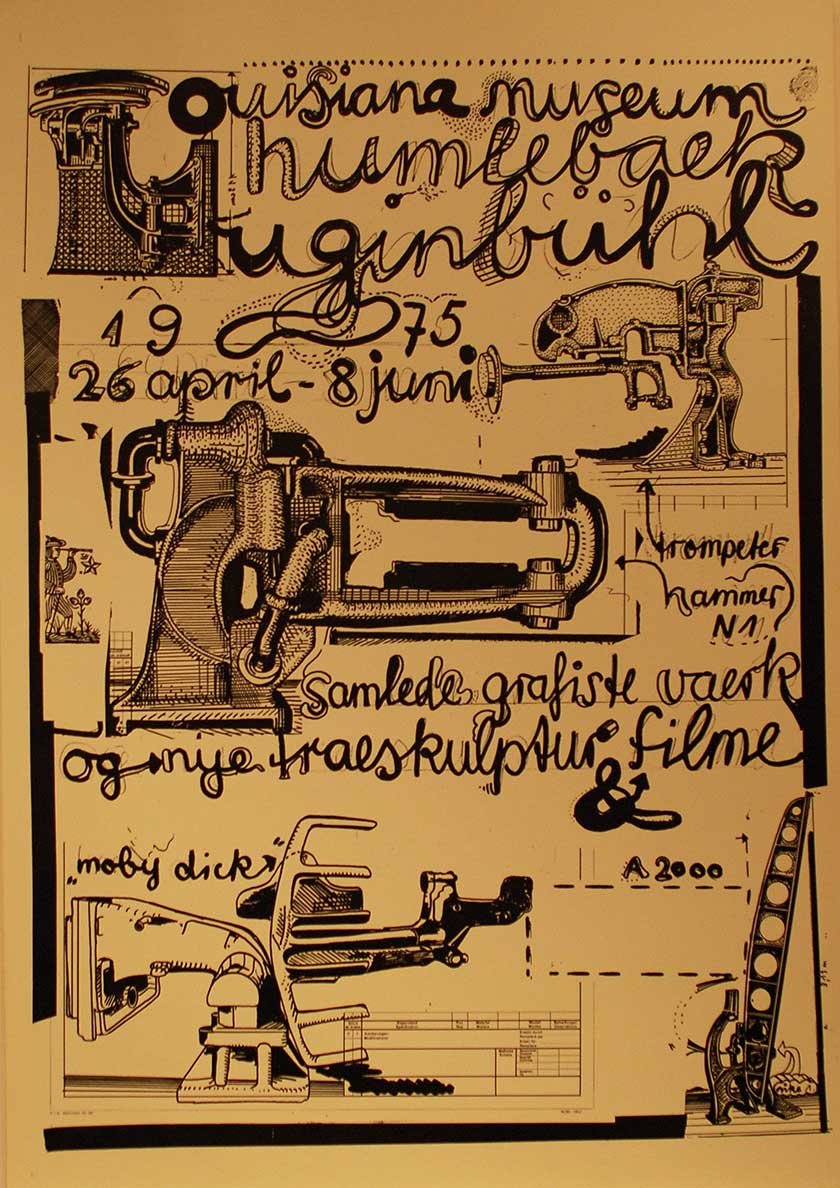 Louisiana museum
humlebaek
Luginbühl
19 75
26 april - 8 juni
trompeter
hammer
N1.
samlede grafiste vaerk
og nije traeskulptur filme
&
"moby dick"
A 2000